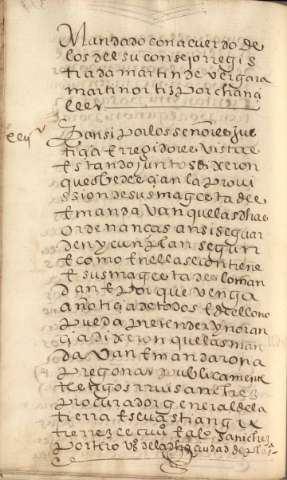 Mandado con acuerdo de
los del su consejo regis
trada martin de vergara
martin ortis por chan
ller
E ansi por los señores jus
tiçia E rregidores vista e
Estando juntos dixeron
que obedeçian la provi
ssion de sus magestades
E mandavan que las dhas
ordenanças ansi se guar
den y cunplan segun
E como En ellas se contiene
E sus magestades lo man
dan E porque venga
a notiçia de todos E dello no
pueda pretender ynoran
çia dixeron que las man
davan E mandaron a
pregonar publicamente
testigos
procurador general de la
tierra E
sanches
portero vº de la dha çiudad de